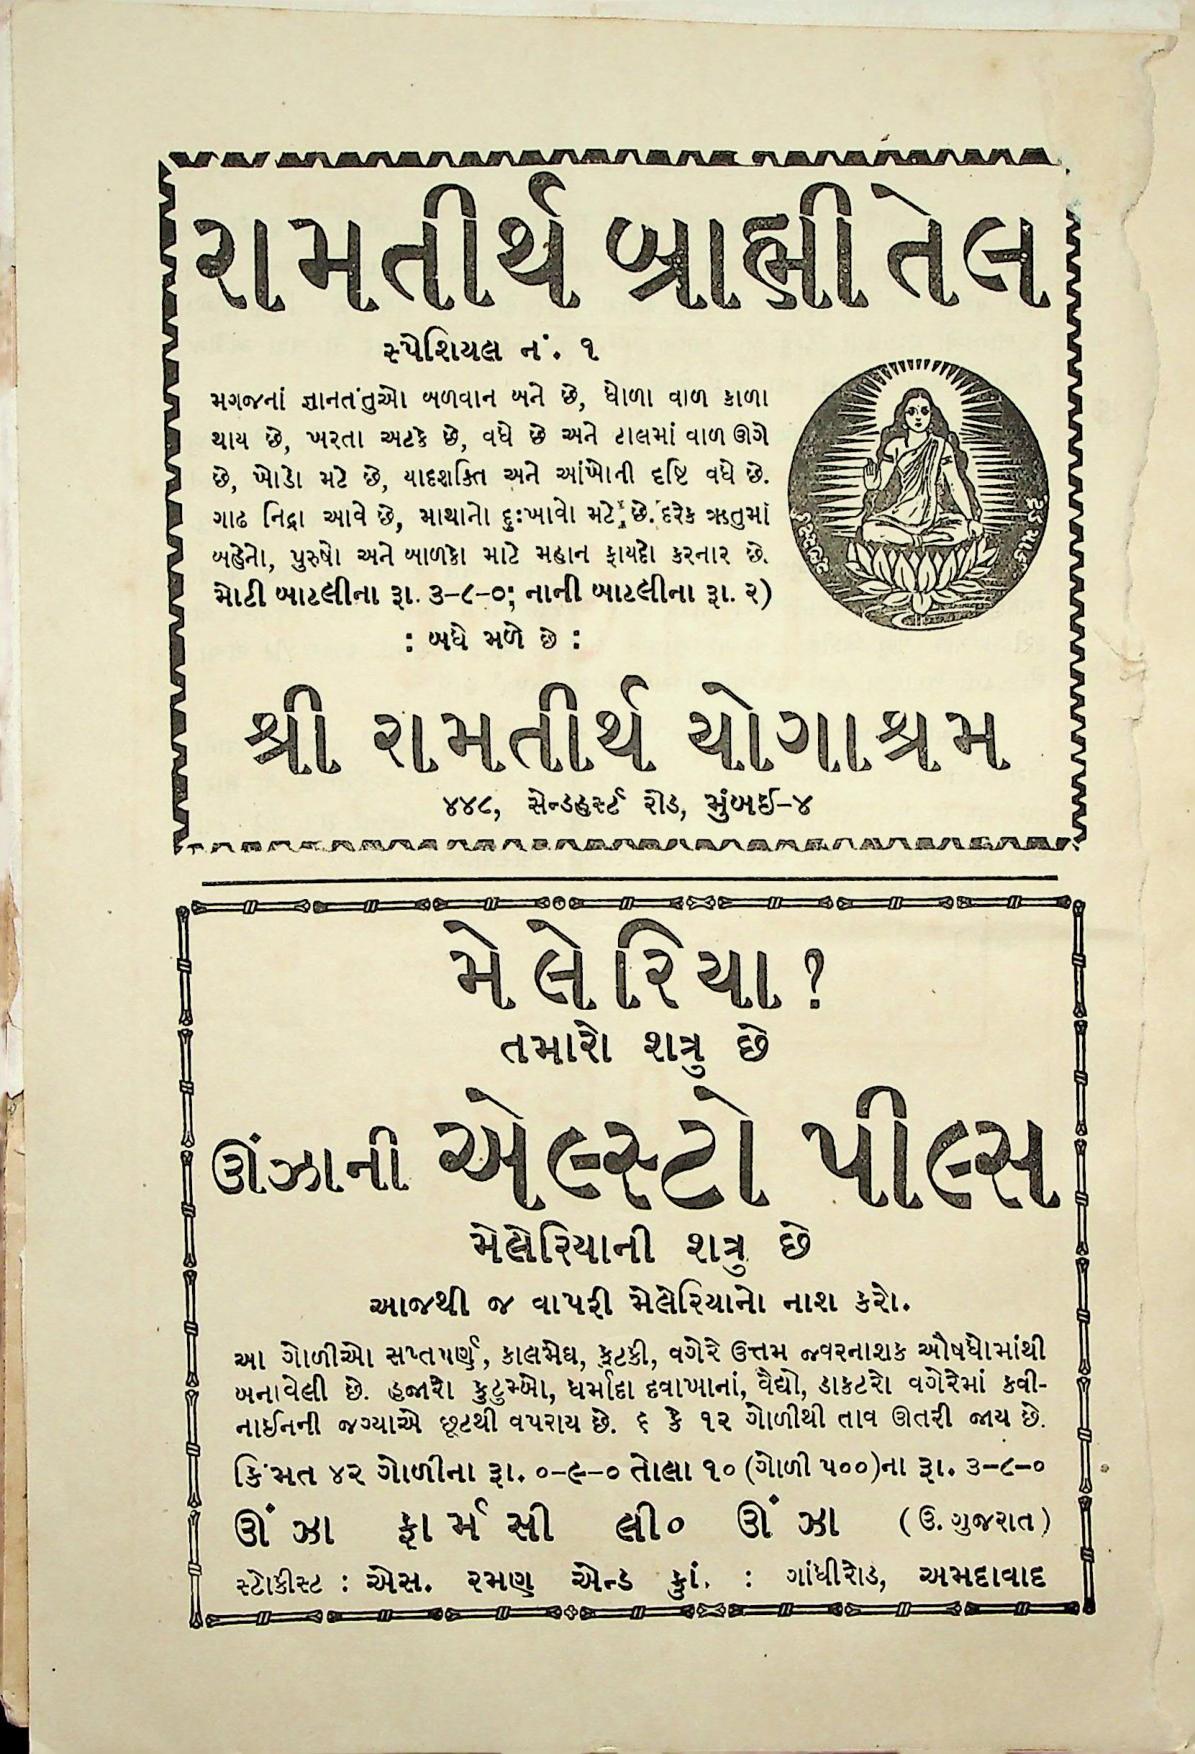 રામતીર્થ બ્રાહ્મી તેલ
સ્પેશિયલ નં. ૧
મગજનાં જ્ઞાનતંતુઓ બળવાન બને છે, ધોળા વાળ કાળા
થાય છે, ખરતા અટકે છે, વધે છે અને ટાલમાં વાળ ઊગે
છે, ખોડો મટે છે, યાદશક્તિ અને આંખોની દૃષ્ટિ વધે છે.
ગાઢ નિદ્રા આવે છે, માથાનો દુઃખાવો મટે છે. દરેક ઋતુમાં
બહેનો, પુરુષો અને બાળકો માટે મહાન ફાયદો કરનાર છે.
મોટી બાટલીના રૂા. ૩-૮-૦; નાની બાટલીના રૂા. ૨)
: બધે મળે છે :
શ્રી રામતીર્થ યોગાશ્રમ
૪૪૮, સેન્ડહર્સ્ટ રોડ, મુંબઈ-૪
મેલેરિયા ?
તમારો શત્રુ છે
ઊંઝાની એલ્સ્ટો પીલ્સ
મેલેરિયાની શત્રુ છે
આજથી જ વાપરી મેલેરિયાનો નાશ કરો.
આ ગોળીઓ સપ્તપર્ણ, કાલમેઘ, કુટકી, વગેરે ઉત્તમ જ્વરનાશક ઔષધોમાંથી
બનાવેલી છે. હજારો કુટુમ્બો, ધર્માદા દવાખાનાં, વૈદ્યો, ડાકટરો વગેરેમાં કવી-
નાઈનની જગ્યાએ છૂટથી વપરાય છે. ૬ કે ૧૨ ગોળીથી તાવ ઊતરી જાય છે.
કિંમત ૪૨ ગોળીના રૂા. ૦-૯-૦ તોલા ૧૦ (ગોળી ૫૦૦)ના રૂા. ૩-૮-૦
ઊંઝા ફાર્મસી લી૦ ઊંઝા (ઉ. ગુજરાત)
સ્ટોકીસ્ટ : એસ. રમણ એન્ડ કુાં. : ગાંધીરોડ, અમદાવાદ